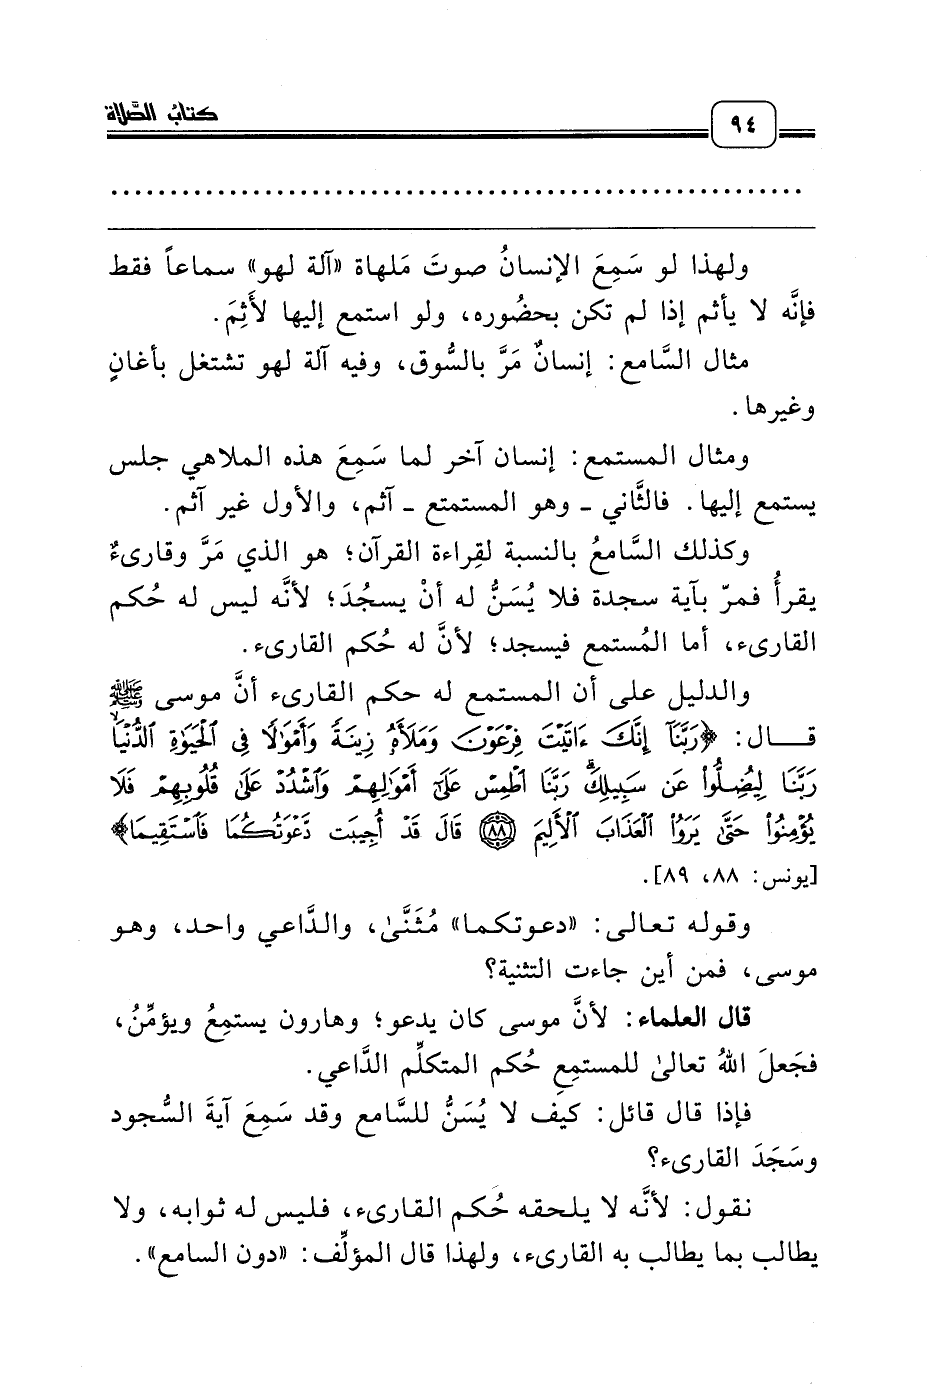 ٩٤
كتابُ الصَّلاة
ولهذا لو سَمِعَ الإنسانُ صوتَ مَلهاة «آلة لهو» سماعاً فقط
فإنَّه لا يأثم إذا لم تكن بحضُوره، ولو استمع إليها لأَثِمَ.
مثال السَّامع: إنسانٌ مَرَّ بالسُّوق، وفيه آلة لهو تشتغل بأغانٍ
وغيرها.
ومثال المستمع: إنسان آخر لما سَمِعَ هذه الملاهي جلس
يستمع إليها. فالثَّاني ـ وهو المستمتع ـ آثم، والأول غير آثم.
وكذلك السَّامعُ بالنسبة لقِراءة القرآن؛ هو الذي مَرَّ وقارىءٌ
يقرأُ فمرّ بآية سجدة فلا يُسَنُّ له أنْ يسجُدَ؛ لأنَّه ليس له حُكم
القارىء، أما المُستمع فيسجد؛ لأنَّ له حُكم القارىء.
والدليل على أن المستمع له حكم القارىء أنَّ موسى ﷺ
قـــال: ﴿رَبَّنَآ إِنَّكَ ءَاتَيْتَ فِرْعَوْنَ وَمَلَأَهُۥ زِينَةً وَأَمْوَٰلًا فِى ٱلْحَيَوٰةِ ٱلدُّنْيَاۙ
رَبَّنَا لِيُضِلُّوا۟ عَن سَبِيلِكَۖ رَبَّنَا ٱطْمِسْ عَلَىٰٓ أَمْوَٰلِهِمْ وَٱشْدُدْ عَلَىٰ قُلُوبِهِمْ فَلَا
يُؤْمِنُوا۟ حَتَّىٰ يَرَوُا۟ ٱلْعَذَابَ ٱلْأَلِيمَ ۝٨٨ قَالَ قَدْ أُجِيبَت دَّعْوَتُكُمَا فَٱسْتَقِيمَا﴾
[يونس: ٨٨، ٨٩].
وقوله تعالى: «دعوتكما» مُثَنَّىٰ، والدَّاعي واحد، وهو
موسى، فمن أين جاءت التثنية؟
قال العلماء: لأنَّ موسى كان يدعو؛ وهارون يستمِعُ ويؤمِّنُ،
فجَعلَ اللهُ تعالىٰ للمستمِعِ حُكم المتكلِّم الدَّاعي.
فإذا قال قائل: كيف لا يُسَنُّ للسَّامع وقد سَمِعَ آيةَ السُّجود
وسَجَدَ القارىء؟
نقول: لأنَّه لا يلحقه حُكم القارىء، فليس له ثوابه، ولا
يطالب بما يطالب به القارىء، ولهذا قال المؤلِّف: «دون السامع».